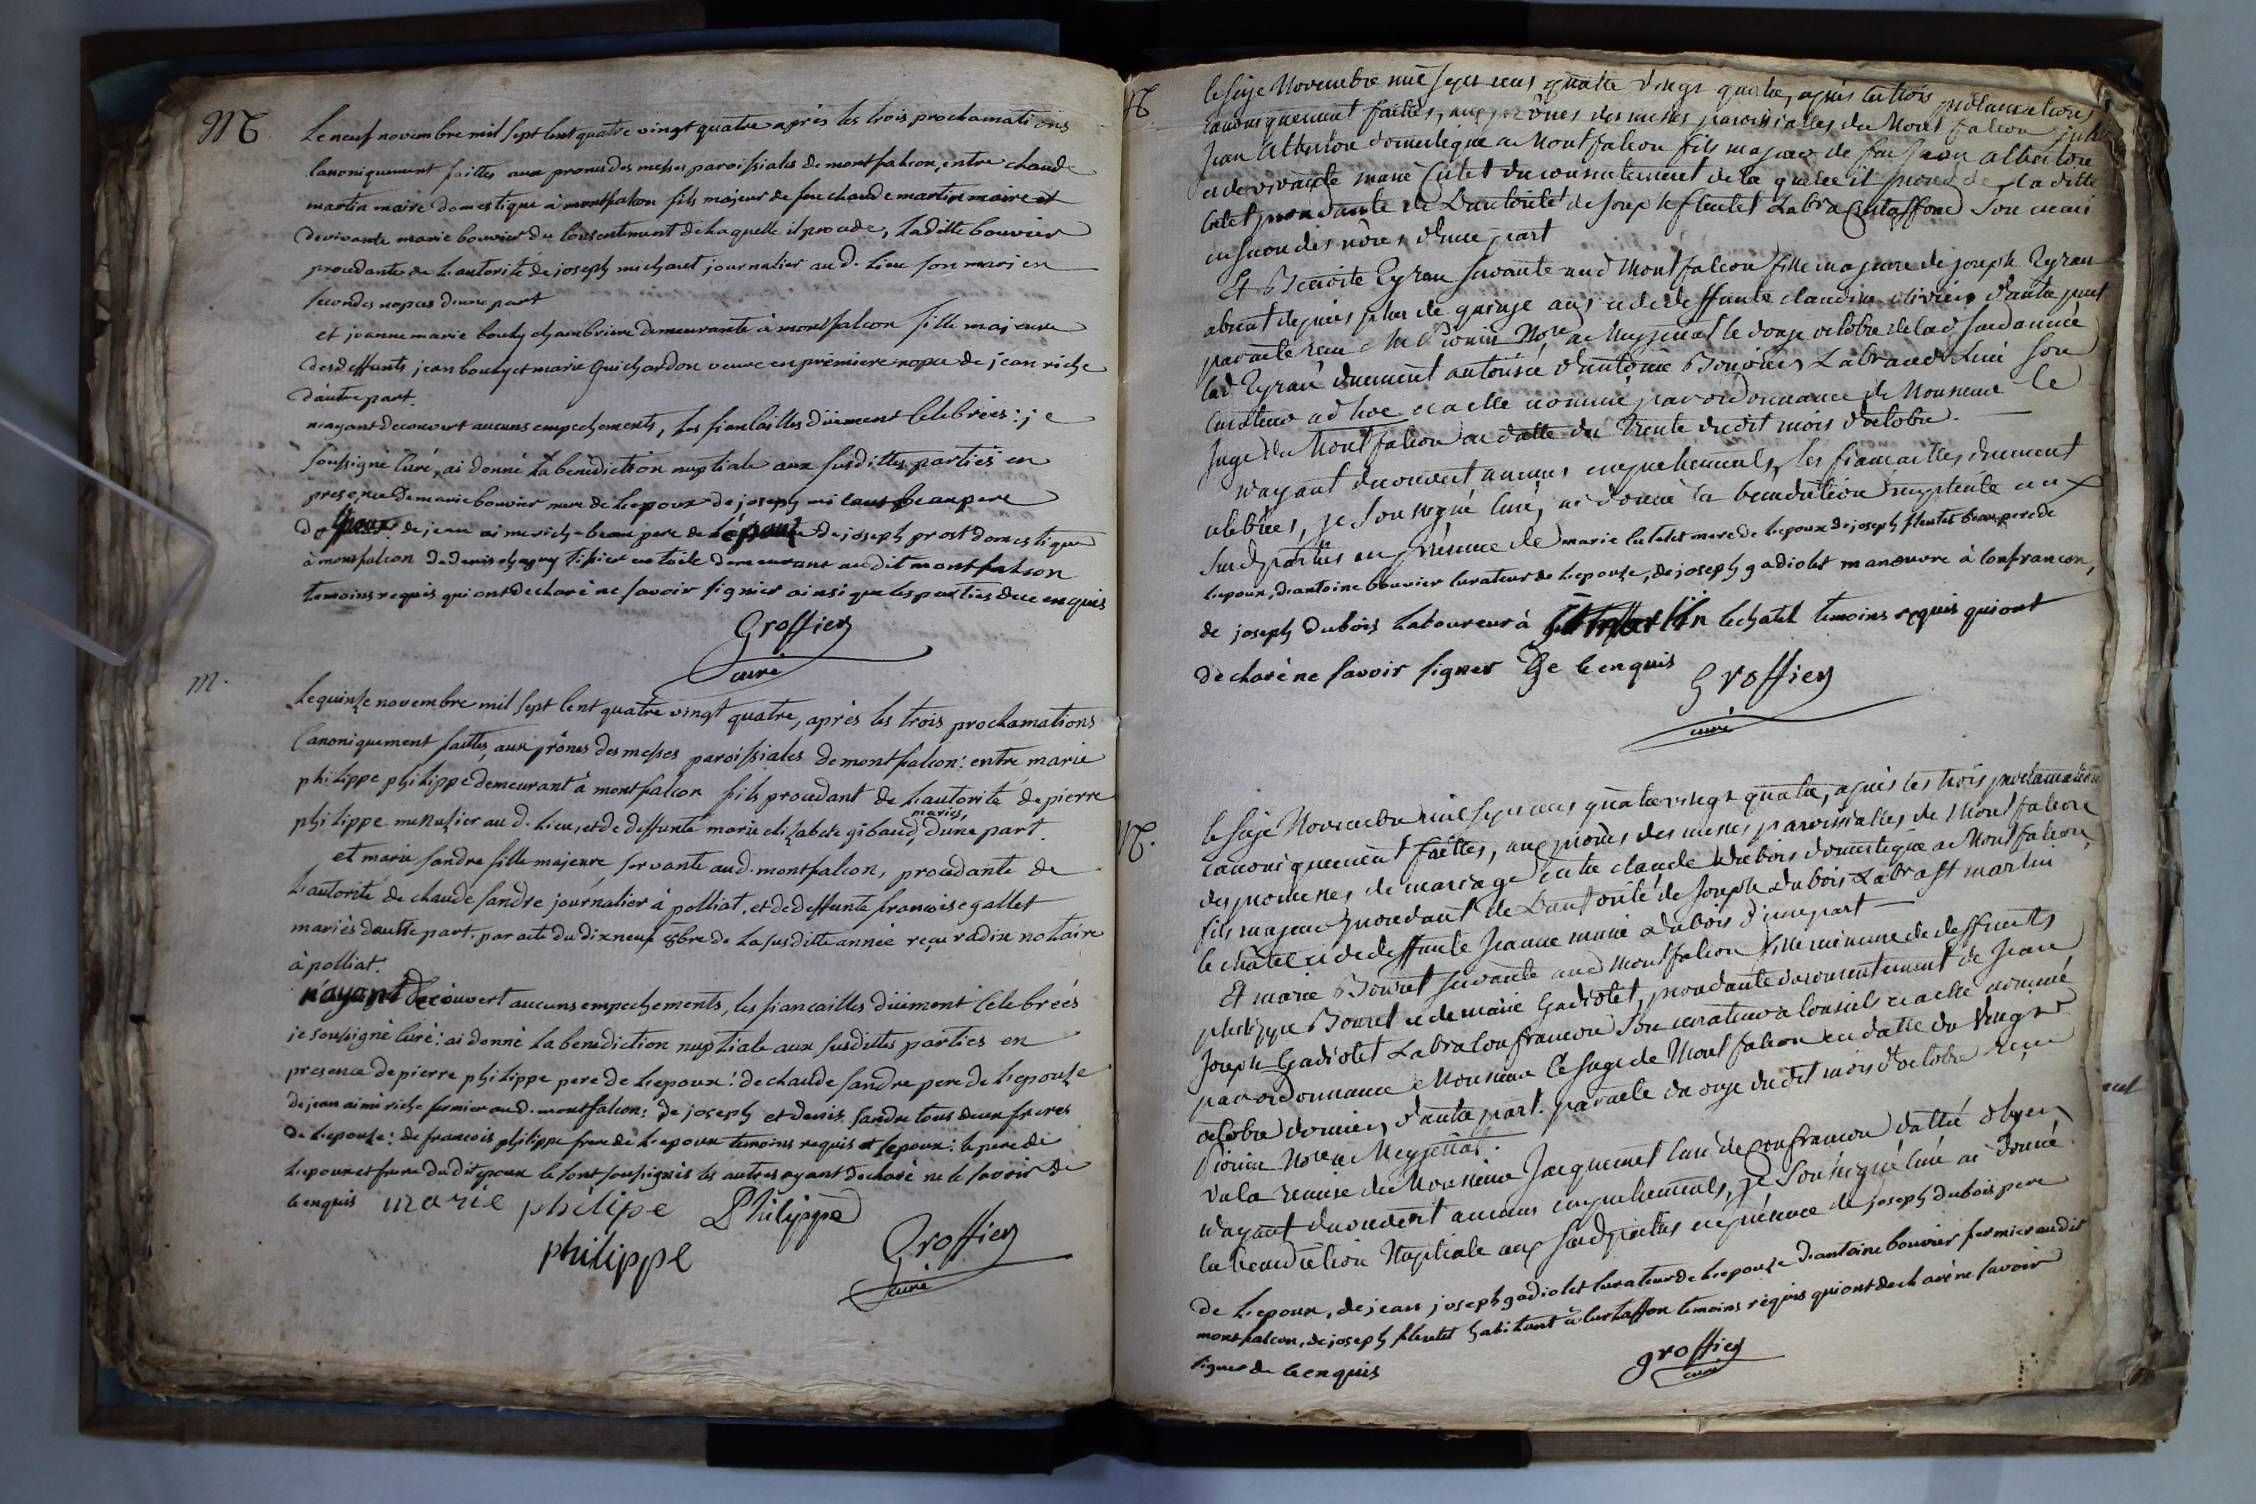 M
Le neuf novembre mil sept cent quatre vingt quatre après les trois proclamations
canoniquement faittes aux prones des messes paroissiales de montfalcon, entre claude
martin maire domestique à montfalcon fils majeur de feu claude martin maire et
de vivante marie bouvier du consentement de laquelle il procede, laditte bouvier
procedante de l'autorité de joseph michaut journalier aud. lieu son mari en
secondes nopces d'une part
et jeanne marie bouty chambriere demeurante à montfalcon fille majeure
des deffunts jean bouty et marie Guichardon veuve en premiere nopce de jean riche
d'autre part.
n'ayant decouvert aucuns empechements, les fiancailles düement celebrées: je
soussigné curé, ai donné la benediction nuptiale aux susdittes parties en
presence de marie bouvier mere de l'epoux de joseph michaut beaupere
de l'epoux de jean aimé riche beaupere de l'épouse de joseph prost domestique
à montfalcon de denis chagny tissier en toile demeurant audit montfalcon
temoins requis qui ont declaré ne savoir signer ainsi que les parties de ce enquis
Groffier
curé
M.
Le quinze novembre mil sept cent quatre vingt quatre, après les trois proclamations
canoniquement faittes, aux prônes des messes paroissiales de montfalcon: entre marie
philippe philippe demeurant à montfalcon fils procedant de l'autorité de pierre
philippe menusier au d. lieu, et de deffunte marie elizabete gibaud, mariés, d'une part.
et marie sandre fille majeure servante aud. montfalcon, procedante de
l'autorité de claude sandre journalier à polliat, et de deffunte francoise gallet
mariés d'autre part. par acte du dix neuf 8bre de la susditte année reçu radix notaire
à polliat.
n'ayant decouvert aucuns empechements, les fiancailles düement celebrées
je soussigné curé: ai donné la benediction nuptiale aux susdittes parties en
presence de pierre philippe pere de l'epoux: de claude sandre pere de l'epouse
de jean aimé riche fermier aud. montfalcon: de joseph et denis sandre tous deux freres
de l'epouse: de francois philippe frere de l'epoux temoins requis et l'epoux: le pere de
l'epoux et frere dudit epoux se sont soussignés les autres ayant declaré ne le savoir de
ce enquis marie philipe Philippe
philippe
Groffier
curé
M
le seize Novembre mil sept cens quatre vingt quatre, après les trois proclamations
canoniquement faittes, aux prônes des messes paroissialles de Montfalcon entre
Jean Albertore domestique a Montfalcon fils majeur de feu Jean Albertore
et de vivante marie Cutet du consentement de la quelle il procede la ditte
Cutet procedante de L'autorité de Joseph fleutet Lab a Curtaffond son mari
en secondes nôces d'une part
Et Benoite Eyrau servante aud Montfalcon fille majeure de joseph Eyrau
absent depuis plus de quinze ans et de deffunte claudine olivier, d'autre part
par acte reçu Me Pionin Nore a Meyzeriat le douze octobre de lad susd année
lad Eyrau duement autorisée d'antoine Bouvier Lab aud Lieu son
curateur ad hoc a elle nommé par ordonnance de Monsieur le
Juge de Montfalcon en datte du trente dudit mois d'octobre.
n'ayant decouvert aucuns empechements, les fiancailles duement
celebrées, je soussigné curé, ai donné la benediction nuptiale aux
susd parties en presence de marie cutet mere de l'epoux de joseph fleutet beaupere de
l'epoux, d'antoine bouvier curateur de l'epouse, de joseph gadiolet manœuvre à confrancon,
de joseph dubois laboureur à St martin lechatel temoins requis qui ont
declaré ne savoir signer De ce enquis Groffier
curé
M.
le seize Novembre mil sept cens quatre vingt quatre, après les trois proclamations
canoniquement faittes, aux prônes des messes paroissialles de Montfalcon
des promesses de mariage entre claude dubois domestique a Montfalcon,
fils majeur procedant de L'autorité de Joseph dubois Lab a St martin
le châtel et de deffunte Jeanne marie dubois d'une part
Et marie Bouret servante aud Montfalcon fille mineure de deffunts
philippe Bouret et de marie Gadiolet, procedante du consentement de Jean
Joseph Gadiolet Lab a Confrancon son curateur a conseils a elle nommé
par ordonnance Monsieur le Juge de Montfalcon en datte du vingt
octobre dernier, d'autre part. par acte du onze dudit mois d'octobre reçu
Pionin Nore a Meyzeriat.
Vu la remise de Monsieur Jacquemet curé de Confrancon dattée d'hyer
n'ayant decouvert aucuns empechements, je soussigné curé ai donné
la benediction Nuptiale aux susd parties en presence de joseph dubois pere
de l'epoux, de jean joseph gadiolet curateur de l'epouse d'antoine bouvier fermier audit
montfalcon, de joseph fleutet habitant à curtaffon temoins requis qui ont declaré ne savoir
signer de ce enquis groffier
curé